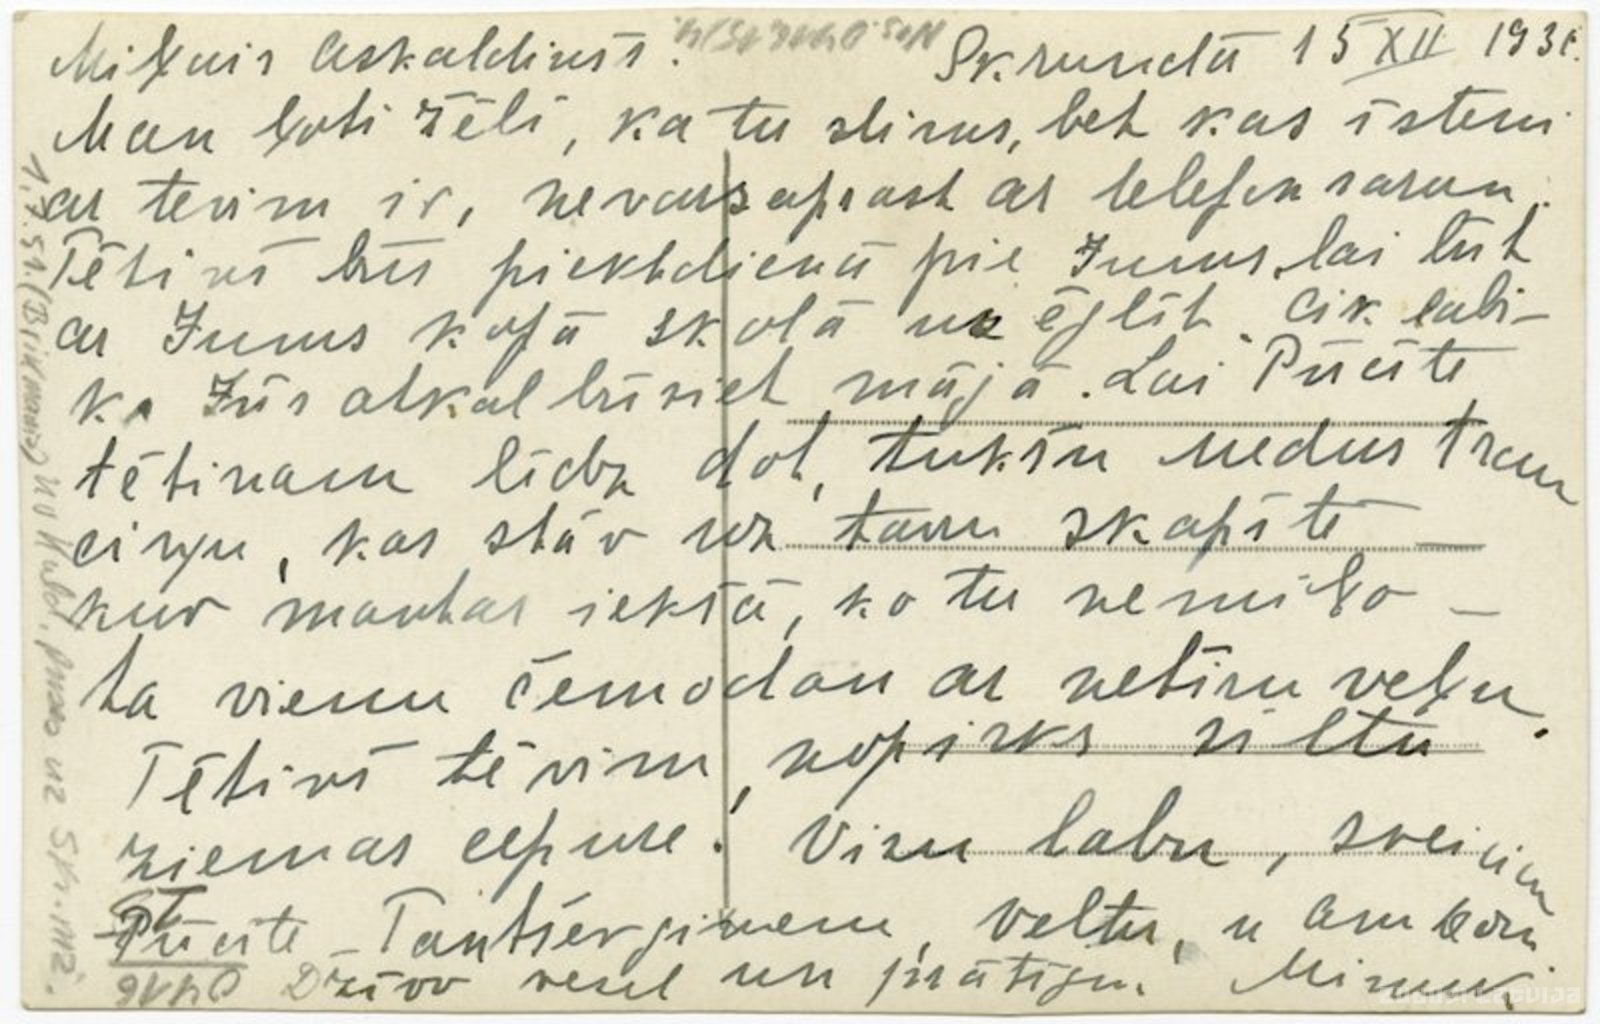 Miļais Askaldiņš. Skrundā 15 XII 193
Man ļoti žēli, ka tu slims, bet kas īsteni
ar tevim ir, nevar saprast ar telefon sarun.
Tētiņš būs piektdienā pie Jums, lai būt
ar Jums kopā skolā uz eglīt. Cik labi-
ka Jūs atkal būsiet mājā. Lai Pūcīte
tētiņam līdz dot, tukšu medus tran
ciņu, kas stāv uz tavu skapīti —
kur mantas iekšā, ko tu nemīļo —
ta vienu čemodan ar netīru veļu.
Tētiņš tēvim, nopirks siltu
ziemas cepure. Visu labu, sveicin
Pūcīte — Tantsērģinem, veltu, u
Dzīvo vesel un prātīgu. Mimmi
1.7.51. (Brikmanis) no Kuld. puses uz Skr. mž.